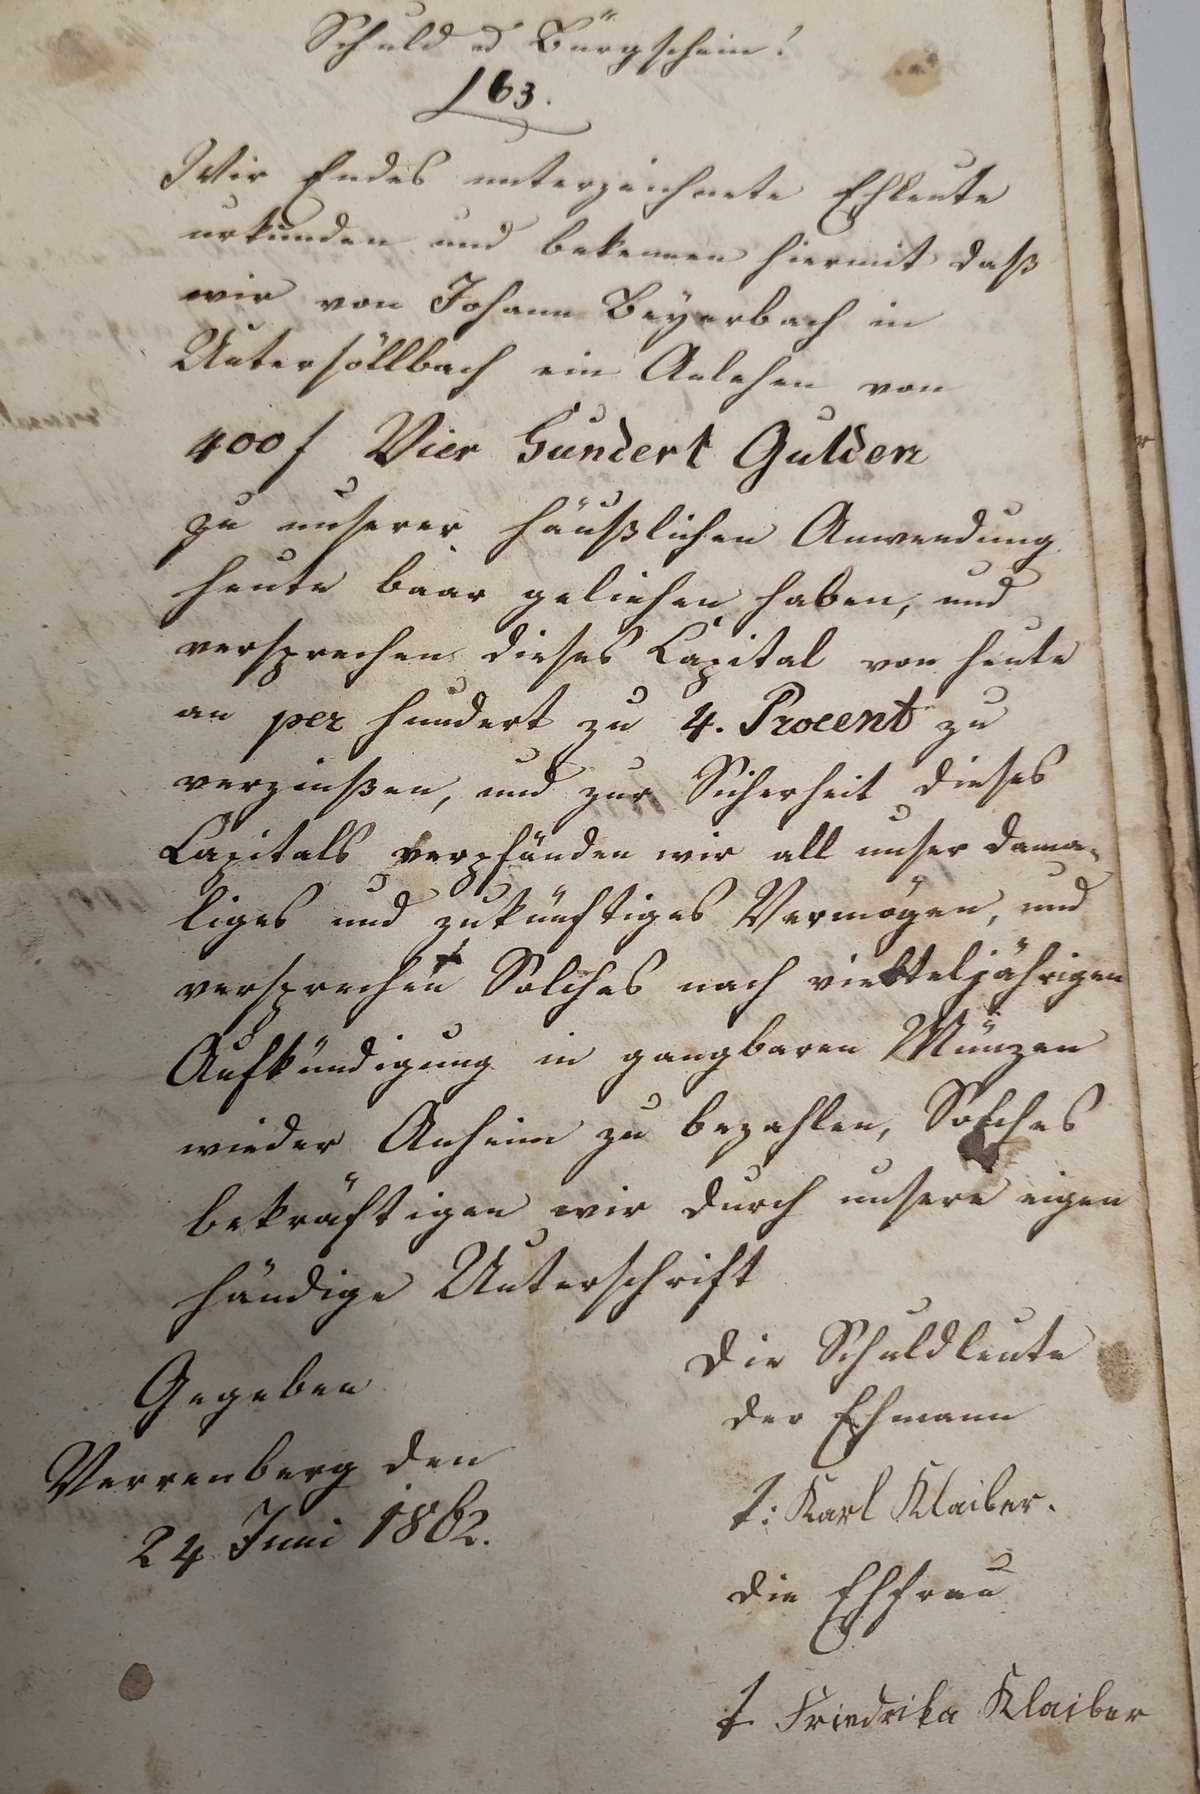 Schuld u Bürgschein!
163.
Wir Endes unterzeichnete Ehleute
urkunden und bekennen hiermit daß
wir von Johann Beyerbach in
Untersöllbach ein Anlehen von
400 f Vier Hundert Gulden
zu unserer häußlichen Anwendung
heute baar geliehen haben, und
versprechen dieses Capital von heute
an per hundert zu 4. Procent zu
verzinßen, und zur Sicherheit dieses
Capitals verpfänden wir all unser dama-
liges und zukünftiges Vermögen, und
versprechen Solches nach vierteljährigen
Aufkündigung in gangbaren Münzen
wieder Anheim zu bezahlen, Solches
bekräftigen wir durch unsere eigen
händige Unterschrift
Gegeben
Verrenberg den
24 Juni 1862.
die Schuldleute
der Ehmann
t: Karl Klaiber.
die Ehfrau
t Friedrika Klaiber